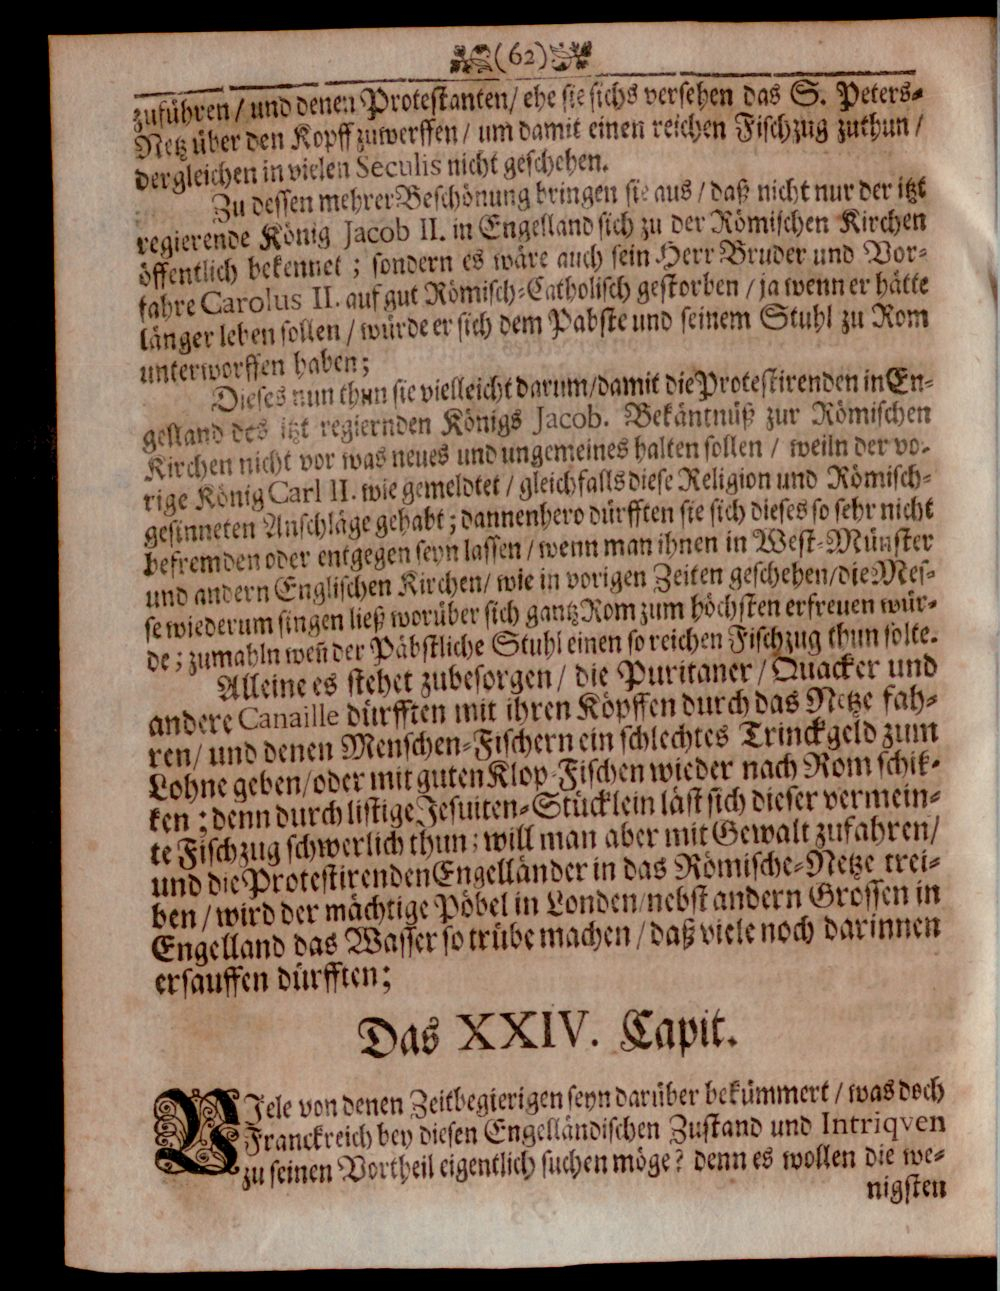 (62)
zuführen / und denen Protestanten / ehe sie sichs versehen das S. Peters-
Netz über den Kopff zuwerffen / um damit einen reichen Fischzug zuthun /
dergleichen in vielen Seculis nicht geschehen.
Zu dessen mehrer Beschönung bringen sie aus / daß nicht nur der itzt
regierende König Jacob II. in Engelland sich zu der Römischen Kirchen
öffentlich bekennet ; sondern es wäre auch sein Herr Bruder und Vor-
fahre Carolus II. auf gut Römisch-Catholisch gestorben / ja wenn er hätte
länger leben sollen / würde er sich dem Pabste und seinem Stuhl zu Rom
unterworffen haben;
Dieses nun thun sie vielleicht darum / damit die Protestirenden in En-
gelland des itzt regiernden Königs Jacob. Bekäntnüß zur Römischen
Kirchen nicht vor was neues und ungemeines halten sollen / weiln der vo-
rige König Carl II. wie gemeldtet / gleichfalls diese Religion und Römisch-
gesinneten Anschläge gehabt ; dannenhero dürfften sie sich dieses so sehr nicht
befremden oder entgegen seyn lassen / wenn man ihnen in West-Münster
und andern Englischen Kirchen / wie in vorigen Zeiten geschehen / die Mes-
se wiederum singen ließ worüber sich gantz Rom zum höchsten erfreuen wür-
de ; zumahln weñ der Päbstliche Stuhl einen so reichen Fischzug thun solte.
Alleine es stehet zubesorgen / die Puritaner / Quacker und
andere Canaille dürfften mit ihren Köpffen durch das Netze fah-
ren / und denen Menschen-Fischern ein schlechtes Trinckgeld zum
Lohne geben / oder mit guten Klop-Fischen wieder nach Rom schik-
ken ; denn durch listige Jesuiten-Stücklein läst sich dieser vermein-
te Fischzug schwerlich thun ; will man aber mit Gewalt zufahren /
und die Protestirenden Engelländer in das Römische-Netze trei-
ben / wird der mächtige Pöbel in Londen / nebst andern Grossen in
Engelland das Wasser so trübe machen / daß viele noch darinnen
ersauffen dürfften;
Das XXIV. Capit.
VJele von denen Zeitbegierigen seyn darüber bekümmert / was doch
Franckreich bey diesen Engelländischen Zustand und Intriqven
zu seinen Vortheil eigentlich suchen möge ? denn es wollen die we-
nigsten